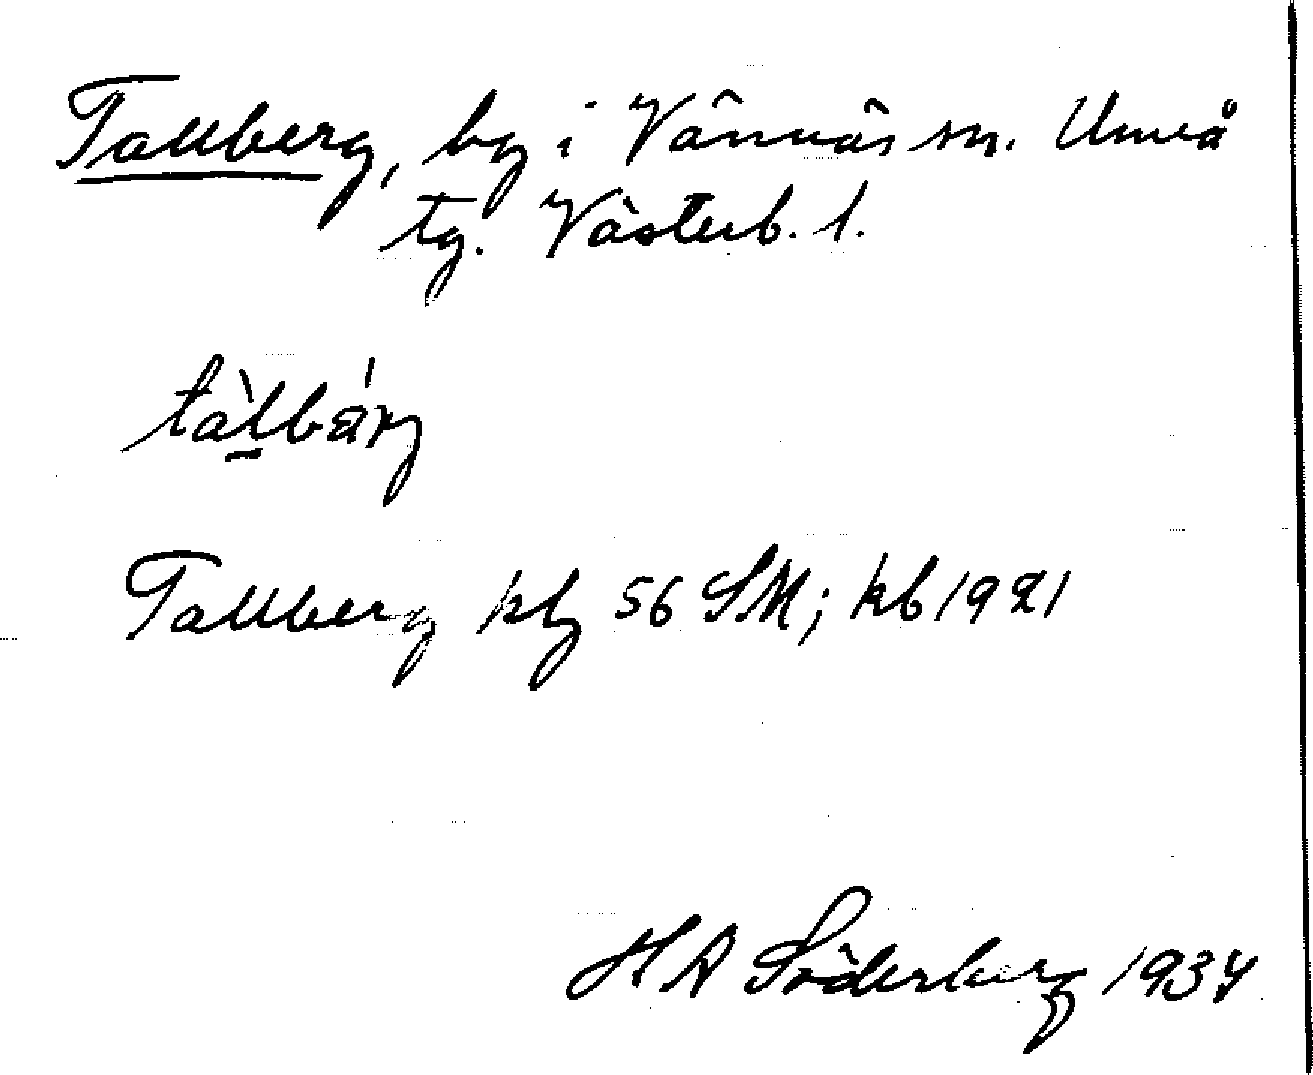 Tallberg, by i Vännäs sn. Umeå
tg. Västerb. l.
tàl̠bä́rj
Tallberg kbg 56 SM; kb 1921
H A Söderberg 1934